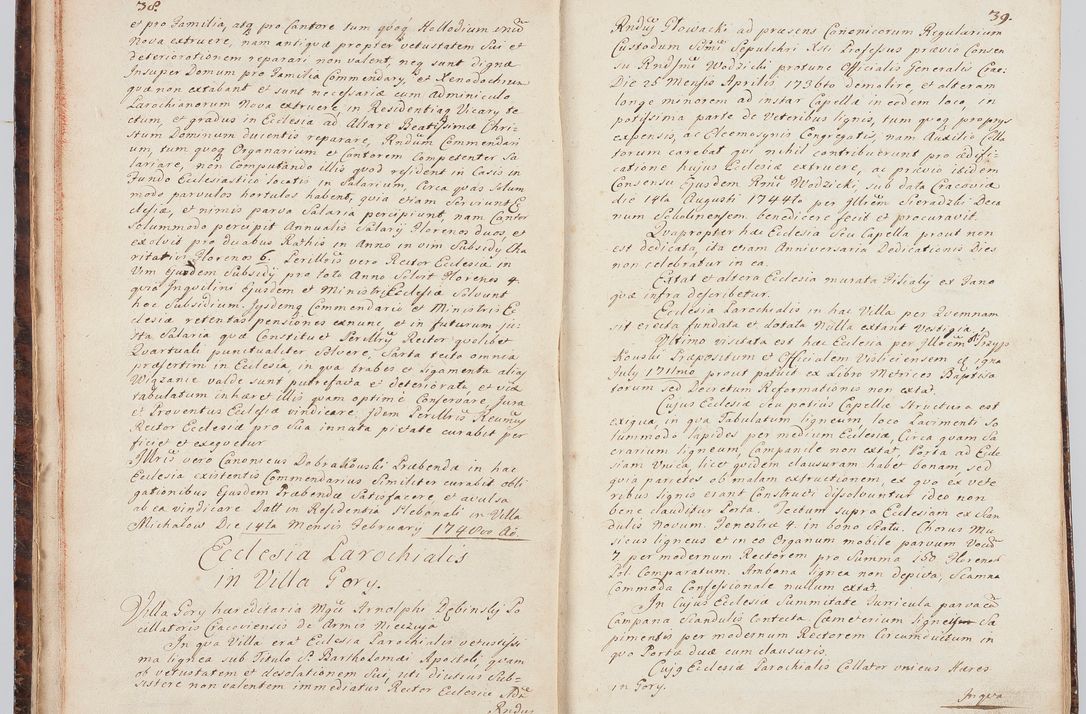 38.
et pro Familia, atq pro Cantore tum quoq Hellodium unū
nova extruere, nam antiqua propter vetustatem sui et
deteriorationem reparari non valent, neq sunt digna
Insuper Domum pro Familia Commendary, et Xenodochium
quæ non extabant et sunt necessariæ cum adminiculo
Parochianorum Nova extruere, in Residentiaq Vicary te
ctum, et gradus in Ecclesia ad Altare Beatissimæ Chri-
stum Dominum ducentis reparare, Rndūm Commendari
um, tum quoq Organarium et Cantorem Competenter Sa
lariare, non Computando illis quod resident in Casis in
Fundo Ecclesiastico locatis in Salarium, Circa quas Solum
modo parvulos hortulos habent, quia etiam Serviunt E
clesiæ, et nimis parva Salaria percipiunt, nam Cantor
Solummodo percipit Annualis Salary Florenos duos, et
exolvit pro duabus Rathis in Anno in vim Subsidy Cha
ritativi Florenos 6. Perillris vero Rector Ecclesiæ in
Vim Ejusdem Subsidy pro toto Anno Solvit Florenos 4.
quia Inquilini Ejusdem et Ministri Ecclesiæ Solvunt
hoc Subsidium. Ijsdemq Commendario et Ministris E
clesiæ retentas pensiones exnunc, et in futurum ju-
sta Salaria quæ Constituet Perillris Rector quolibet
Quartuali punctualiter Solvere, Sarta tecto omnia
præsertim in Ecclesia, in qua trabes et ligamenta alias
Wiązanie valde sunt putrefacta et deteriorata, et vix
tabulatum inhæret illis quam optime Conservare, Jura
et Proventus Ecclesiæ vindicare: Idem Perillris Reumus
Rector Ecclesiæ pro Sua innata pietate curabit per
ficiet et exequetur
Illris vero Canonicus Dobrakowski Præbendæ in hac
Ecclesia existentis Commendarius Similiter curabit obli
gationibus Ejusdem Præbendæ Satisfacere, et avulsa
ab ea vindicare Datt in Residentia Plebanali in Villa
Michalow Die 14ta Mensis February 1748vo Ao.
Ecclesia Parochialis
in Villa Gory.
Villa Gory hæreditaria Mgci Arnolphi Dębinsky Po
cillatoris Cracoviensis de Armis Nieczuja
In qua Villa erat Ecclesia Parochialis vetustissi
ma lignea sub Titulo S. Bartholomæi Apostoli, quam
ob vetustatem et desolationem Sui, uti diutius Sub-
sistere non valentem immediatus Rector Ecclesiæ Adm
Rndus
39.
Rndus Głowacki ad præsens Canonicorum Regularium
Custodum Sdmi Sepulchri Xsti Professus prævio Consen
su Rndssmi Wodzicki protunc Officialis Generalis Crac:
Die 25 Mensis Aprilis 1736to demolire, et alteram
longe minorem ad instar Capellæ in eodem loco, in
potissima parte de Veteribus lignis, tum quoq proprys
expensis, ac Eleemosynis Congregatis, nam Auxilio Colla
torum carebat qui nihil contribuerunt pro ædifi-
catione hujus Ecclesiæ extruere, ac prævio itidem
Consensu Ejusdem Rmi Wodzicki, sub data Cracoviæ
die 14ta Augusti 1744to per Illrem Sieradzki Deca
num Sokolinensem benedicere fecit et procuravit.
Quapropter hæc Ecclesia Seu Capella prout non
est dedicata, ita etiam Anniversaria Dedicationis Dies
non celebratur in ea.
Extat et altera Ecclesia murata Filialis ex Fano
quæ infra describetur.
Ecclesia Parochialis in hac Villa per Quemnam
sit erecta fundata et dotata Nulla extant Vestigia
Ultimo visitata est hæc Ecclesia per Illrem Przyp
kowski Præpositum et Officialem Visliciensem
July 1711mo prout patuit ex Libro Metrices Baptisa
torum sed Decretum Reformationis non extat.
Cujus Ecclesiæ Seu potius Capellæ Structura est
exigua, in qua Tabulatum ligneum loco Pavimenti So
lummodo lapides per medium Ecclesiæ, Circa quam Sa
crarium ligneum, Campanile non extat, Porta ad Ecle
siam Unica, licet quidem clausuram habet bonam, sed
quia parietes ob malam extructionem, ex quo ex vete
ribus lignis erant Constructi dissolvuntur ideo non
bene clauditur Porta. Tectum supra Ecclesiam ex Scan
dulis Novum. Fenestræ 4. in bono Statu. Chorus Mu
sicus ligneus et in eo Organum mobile parvum Vocū
7 per modernum Rectorem pro Summa 150 Florenor
Pol: Comparatum. Ambona lignea non depicta, Scamna
Commoda Confessionale nullum extat.
In Cujus Ecclesiæ Summitate Turricula parva cū
Campana Scandulis Contecta Cæmeterium Ligneis Sa
pimentis per modernum Rectorem Circumductum in
quo Portæ duæ cum clausuris.
Cujq Ecclesiæ Parochialis Collator unicus Hæres
in Gory.
In qua